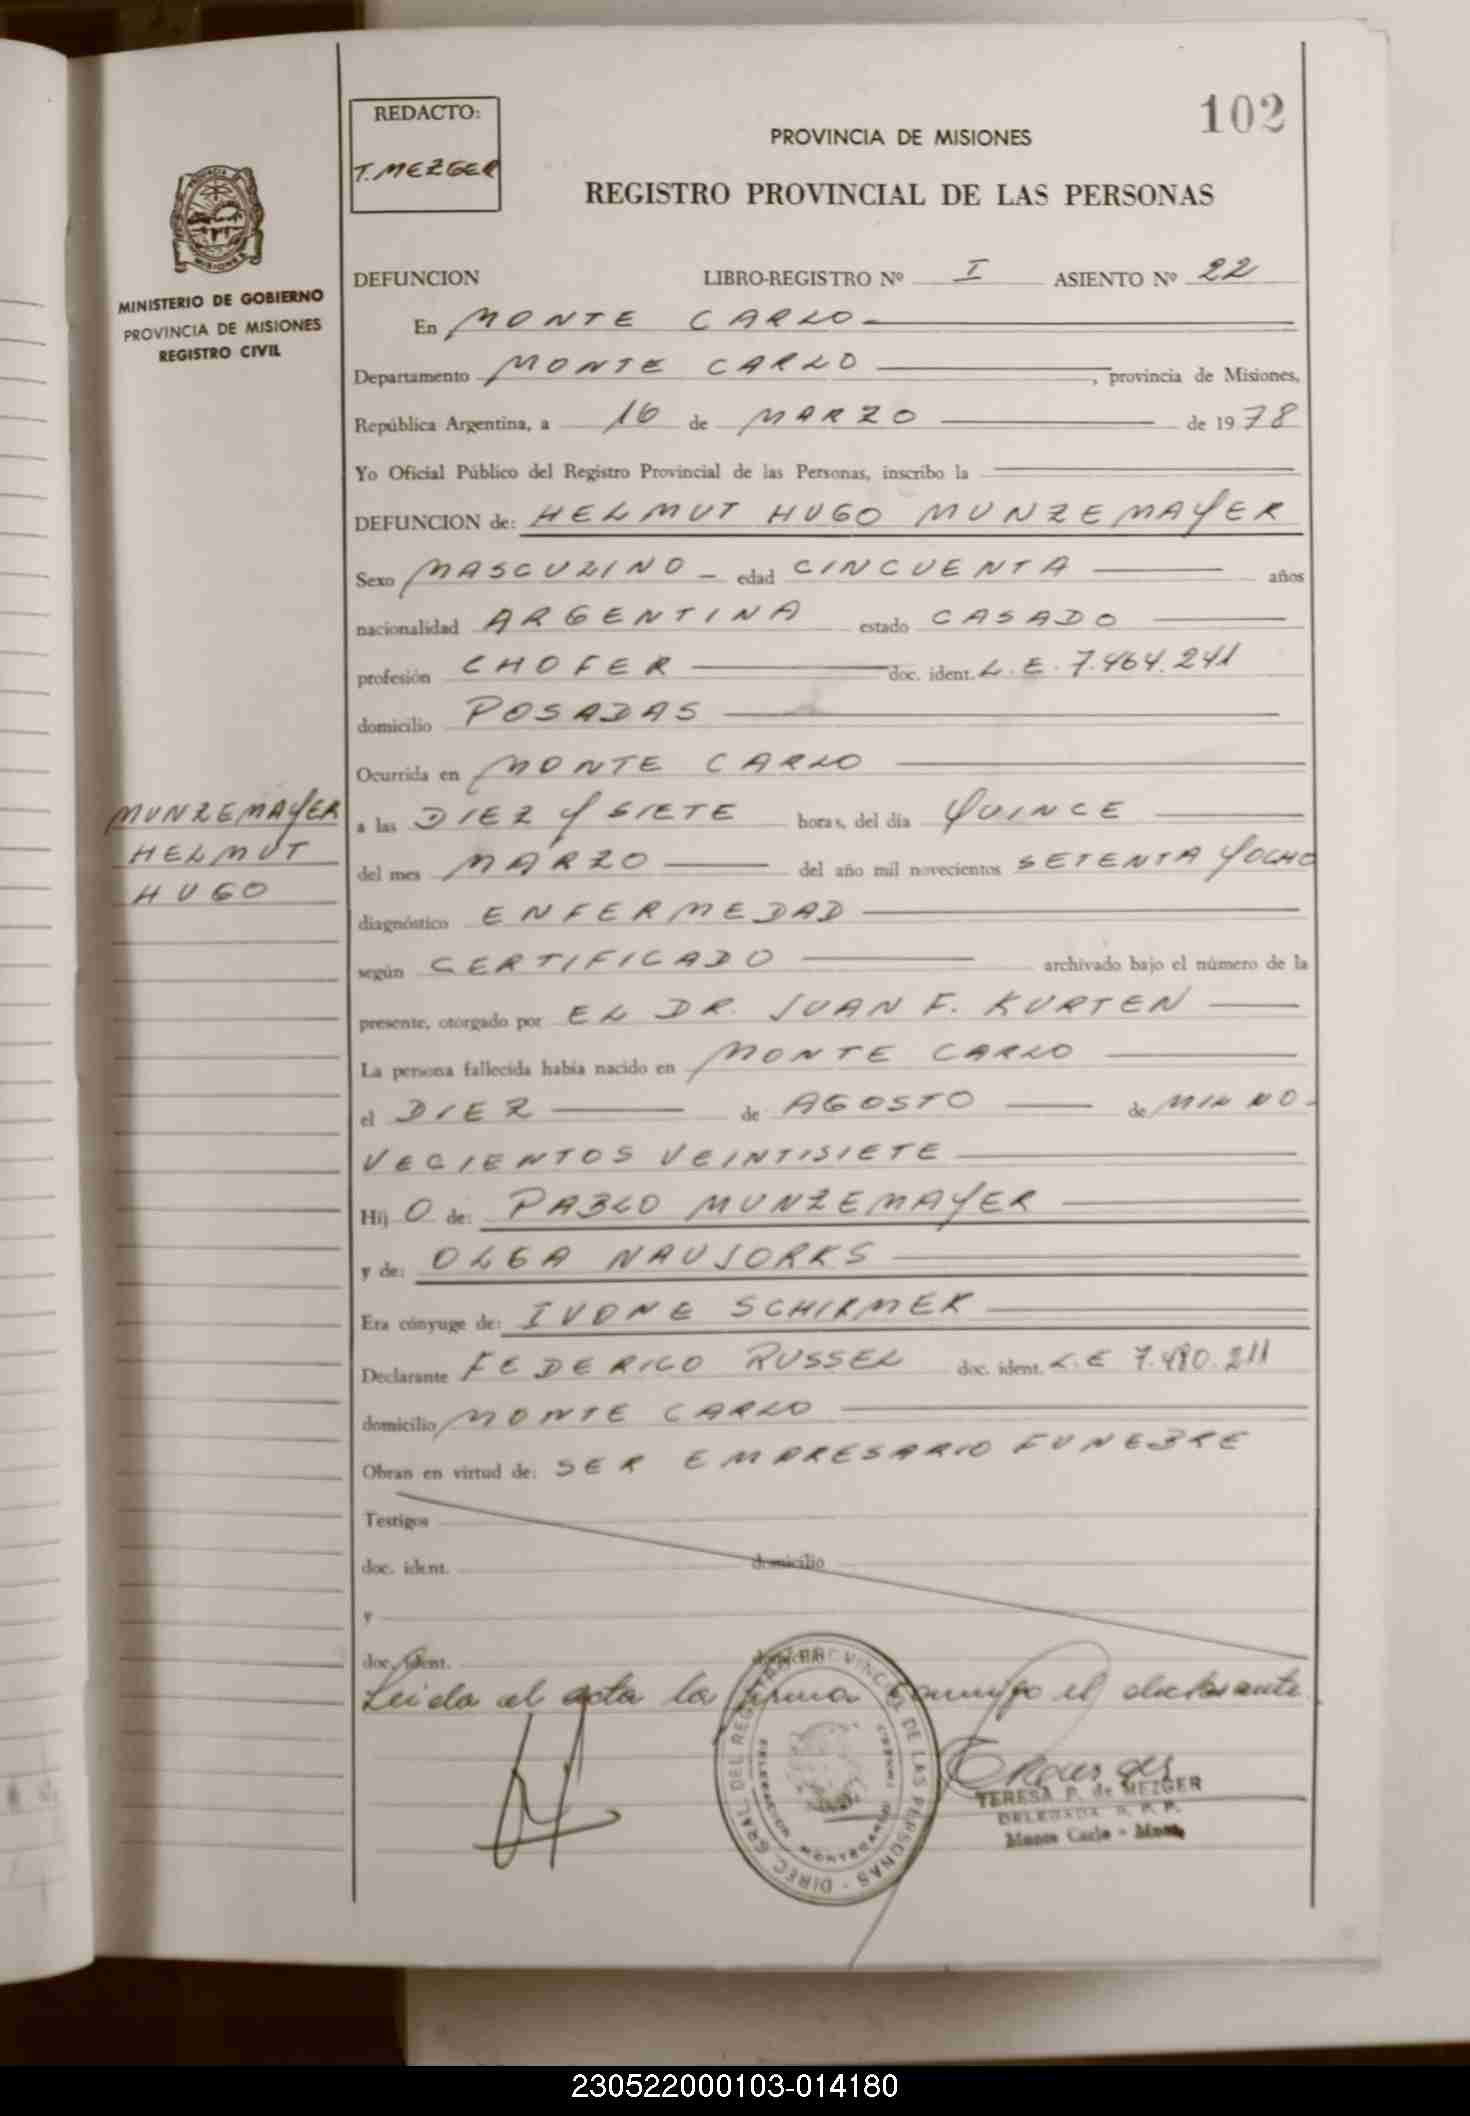 102
REDACTO:
T. MEZGER
PROVINCIA DE MISIONES
REGISTRO PROVINCIAL DE LAS PERSONAS
MINISTERIO DE GOBIERNO
PROVINCIA DE MISIONES
REGISTRO CIVIL
DEFUNCION LIBRO-REGISTRO Nº I ASIENTO Nº 22
En MONTE CARLO
Departamento MONTE CARLO, provincia de Misiones,
República Argentina, a 16 de MARZO de 1978
Yo Oficial Público del Registro Provincial de las Personas, inscribo la
DEFUNCION de: HELMUT HUGO MUNZEMAYER
Sexo MASCULINO - edad CINCUENTA años
nacionalidad ARGENTINA estado CASADO
profesión CHOFER doc. ident. L.E. 7.464.241
domicilio POSADAS
Ocurrida en MONTE CARLO
MUNZEMAYER
HELMUT
HUGO
a las DIEZ Y SIETE horas, del día QUINCE
del mes MARZO del año mil novecientos SETENTA Y OCHO
diagnóstico ENFERMEDAD
según CERTIFICADO archivado bajo el número de la
presente, otorgado por EL DR. JUAN F. KURTEN
La persona fallecida había nacido en MONTE CARLO
el DIEZ de AGOSTO de MIL NO-
VECIENTOS VEINTISIETE
Hij O de: PABLO MUNZEMAYER
y de: OLGA NAUJORKS
Era cónyuge de: IVONE SCHIRMER
Declarante FEDERICO RUSSEL doc. ident. L.E 7.480.211
domicilio MONTE CARLO
Obran en virtud de: SER EMPRESARIO FUNEBRE
Testigos
doc. ident. domicilio
y
doc. ident. domicilio
Leida el acta la firma conmigo el declarante.
DIREC. GRAL. DEL REGISTRO PROVINCIAL DE LAS PERSONAS
DELEGACION MONTECARLO
TERESA P. de MEZGER
DELEGADA R. P. P.
Monte Carlo - Mnes.
230522000103-014180